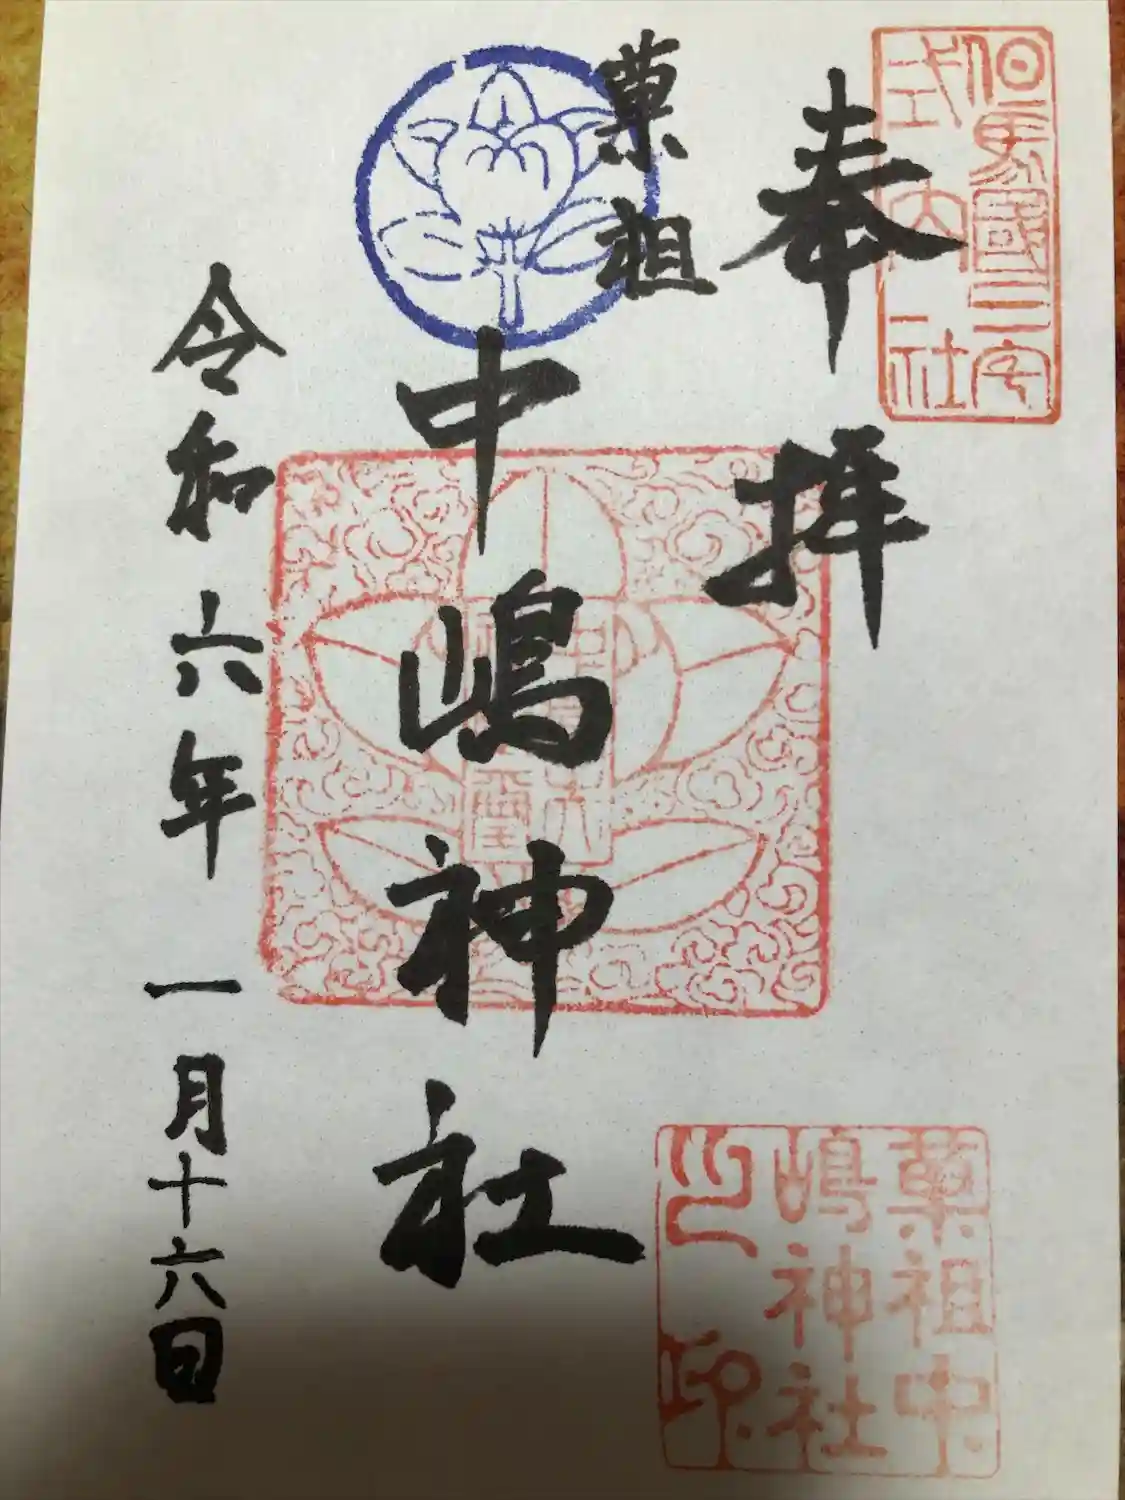 但馬國三宮
式内社
奉拝
菓祖
中嶋神社
令和六年 一月十六日
菓祖中
嶋神社
之印